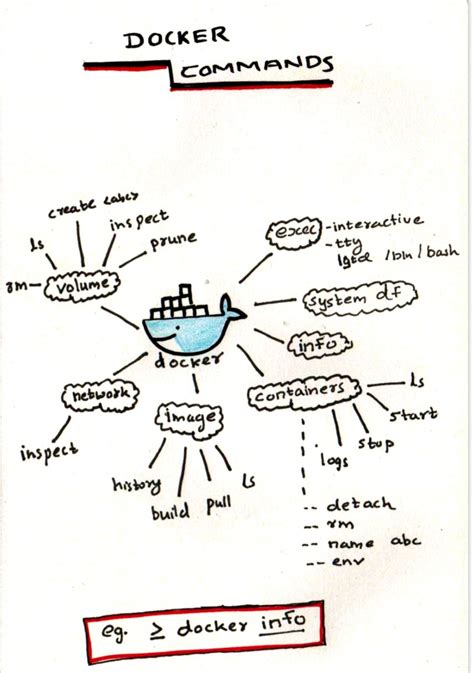 DOCKER
COMMANDS
create
inspect
ls
prune
rm
volume
exec
-interactive
-tty
/bin/bash
system df
info
docker
network
image
containers
inspect
history
build
pull
ls
ls
start
stop
logs
-- detach
-- rm
-- name abc
-- env
eg. ≥ docker info